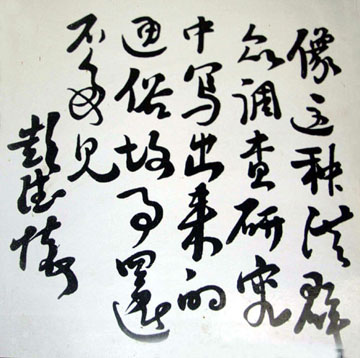 像这种從群
众调查研究
中写出来的
通俗故事還
不多见
彭德怀